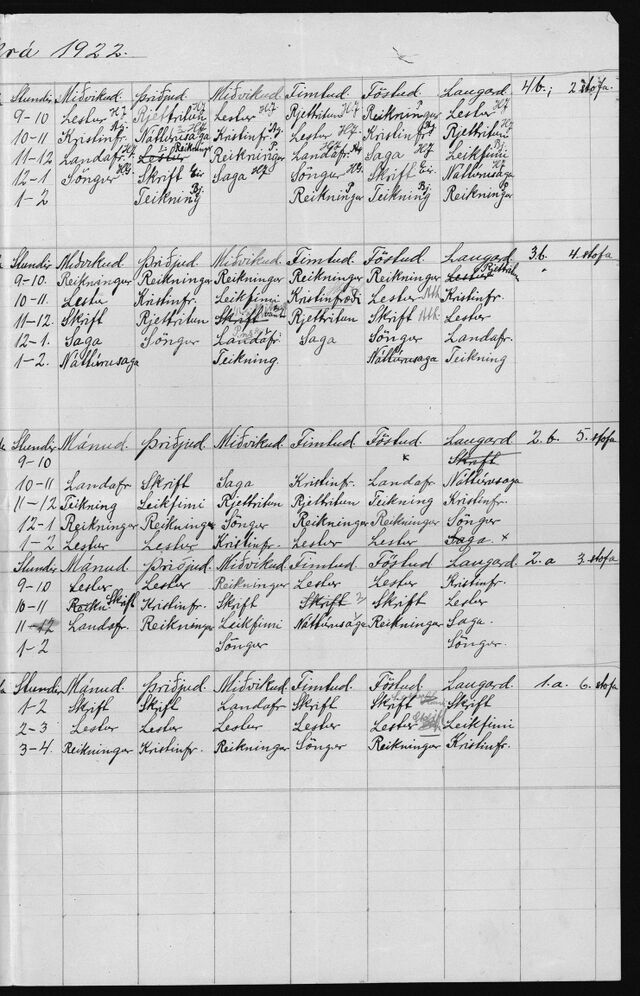 rá 1922.
Stundir Miðvikud. Þriðjud. Miðvikud. Fimtud. Föstud. Laugard. 4b. 2 stofa.
9-10 Lestur HJ Rjettritun HJ Lestur HJ Rjettritun HJ Reikningur P. Lestur HJ
10-11 Kristinfr. Nattúrusaga HJ Kristinfr. Lestur HJ Kristinfr. Rjettritun HJ
11-12 Landafr. HJ Lestur Reikningur Reikningur P. Landafr. Saga HJ Leikfimi
12-1 Söngur Skrift Saga HJ Söngur Skrift Náttúrusaga HJ
1-2 Teikning Bj Reikningur P Teikning Bj Reikningur P
Stundir Miðvikud. Þriðjud. Miðvikud. Fimtud. Föstud. Laugard. 3b. 4 stofa
9-10. Reikningur Reikningur Reikningur Reikningur Reikningur Lestur Rjettritun
10-11. Lestur Kristinfr. Leikfimi Kristinfræði Lestur Kristinfr.
11-12. Skrift Rjettritun Skrift Rjettritun Skrift Lestur
12-1. Saga Söngur Landafr. Saga Söngur Landafr.
1-2. Nattúrusaga Teikning Náttúrusaga Teikning
Stundir Mánud. Þriðjud. Miðvikud. Fimtud. Föstud. Laugard 2.b. 5. stofa
9-10 Skrift
10-11 Landafr. Skrift Saga Kristinfr. Landafr. Náttúrusaga
11-12 Teikning Leikfimi Rjettritun Rjettritun Teikning Kristinfr.
12-1 Reikningur Reikningur Söngur Reikningur Reikningur Söngur
1-2 Lestur Lestur Kristinfr. Lestur Lestur Saga. x
Stundir Mánud. Þriðjud. Miðvikud. Fimtud Föstud Laugard. 2.a 3. stofa
9-10 Lestur Lestur Reikningur Lestur Lestur Kristinfr.
10-11 Skrift Kristinfr. Skrift Skrift Skrift Lestur
11-12 Landafr. Reikningur Leikfimi Náttúrusaga Reikningur Saga.
1-2 Söngur Söngur.
Stundir Mánud. Þriðjud. Miðvikud. Fimtud. Föstud. Laugard. 1.a. 6. stofa
1-2 Skrift Skrift Landafr. Skrift Skrift Skrift
2-3 Lestur Lestur Lestur Lestur Lestur Leikfimi
3-4 Reikningur Kristinfr. Reikningur Söngur Reikningur Kristinfr.